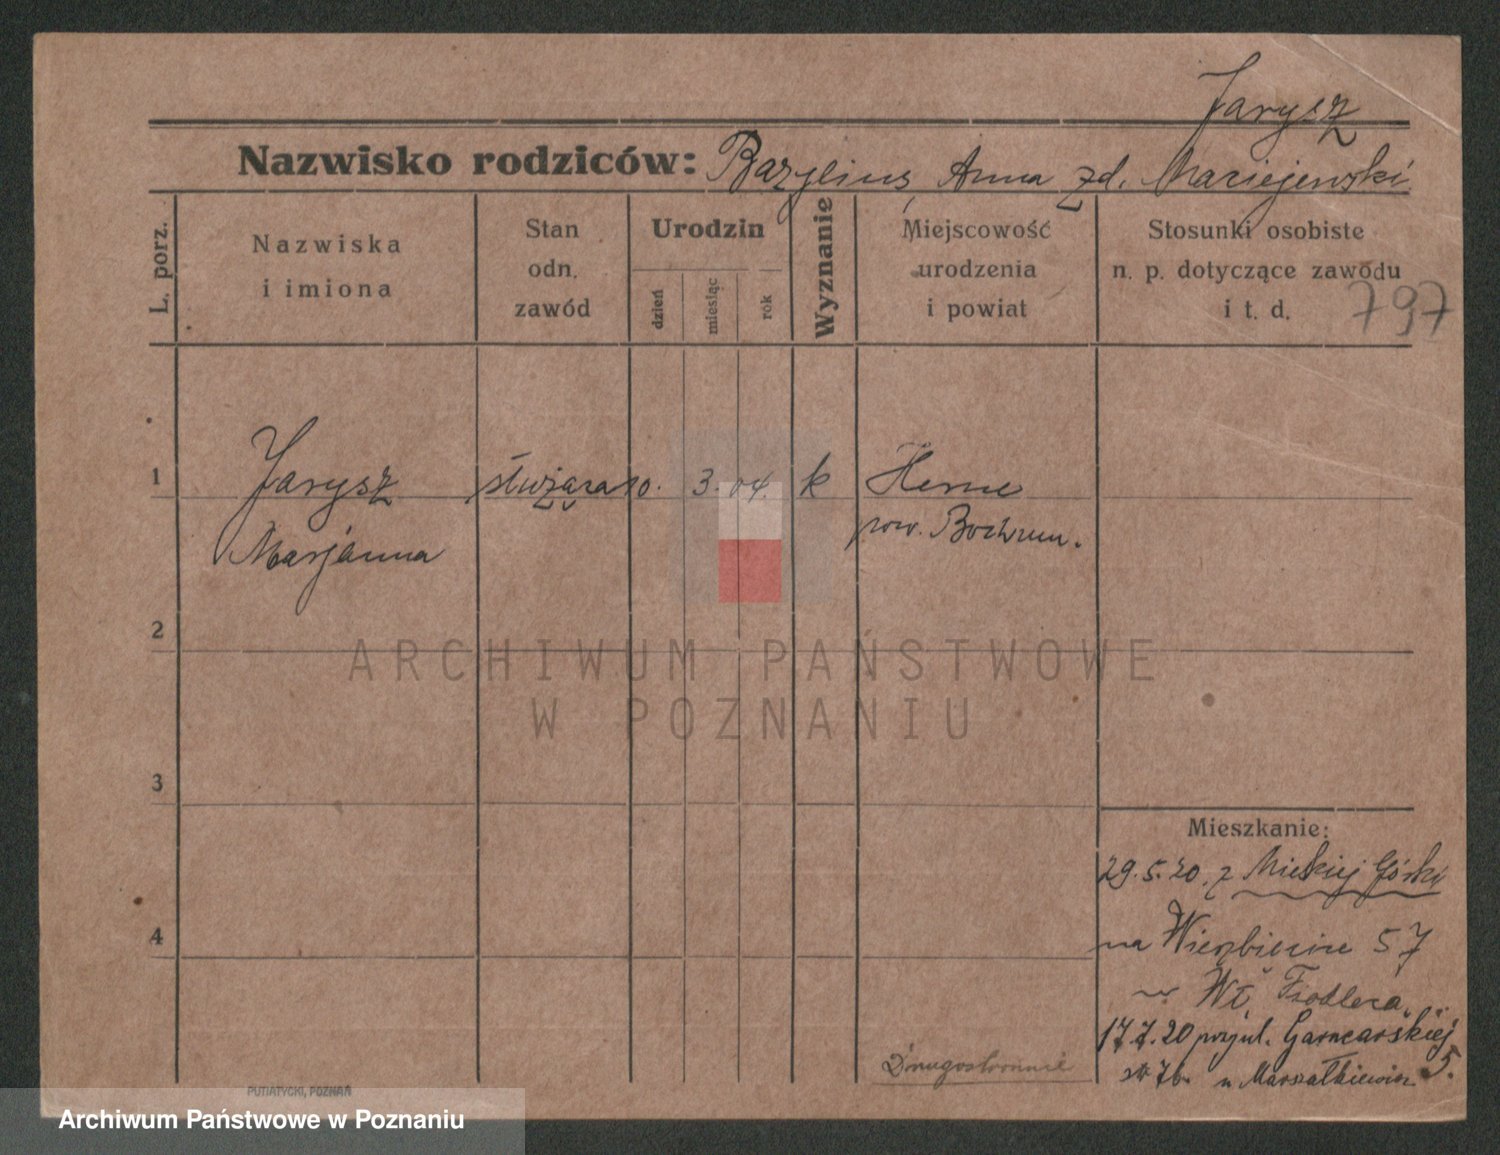 Jarysz
Nazwisko rodziców: Bazylius, Anna zd. Maciejewski
L. porz.
Nazwiska
i imiona
Stan
odn.
zawód
Urodzin
dzień
miesiąc
rok
Wyznanie
Miejscowość
urodzenia
i powiat
Stosunki osobiste
n. p. dotyczące zawodu
i t. d.
797
1
Jarysz
Marjanna
służąca
10.
3.
04.
k
Herne
pow. Bochum.
2
ARCHIWUM PAŃSTWOWE
W POZNANIU
3
4
Mieszkanie:
29.5.20. z Miejskiej Górki
na Wierzbięcice 57
Fiedlera
17.7.20 przy ul. Garncarskiej
5.
u Marszałkiewicz
Drugostronnie
PUTIATYCKI, POZNAŃ
Archiwum Państwowe w Poznaniu